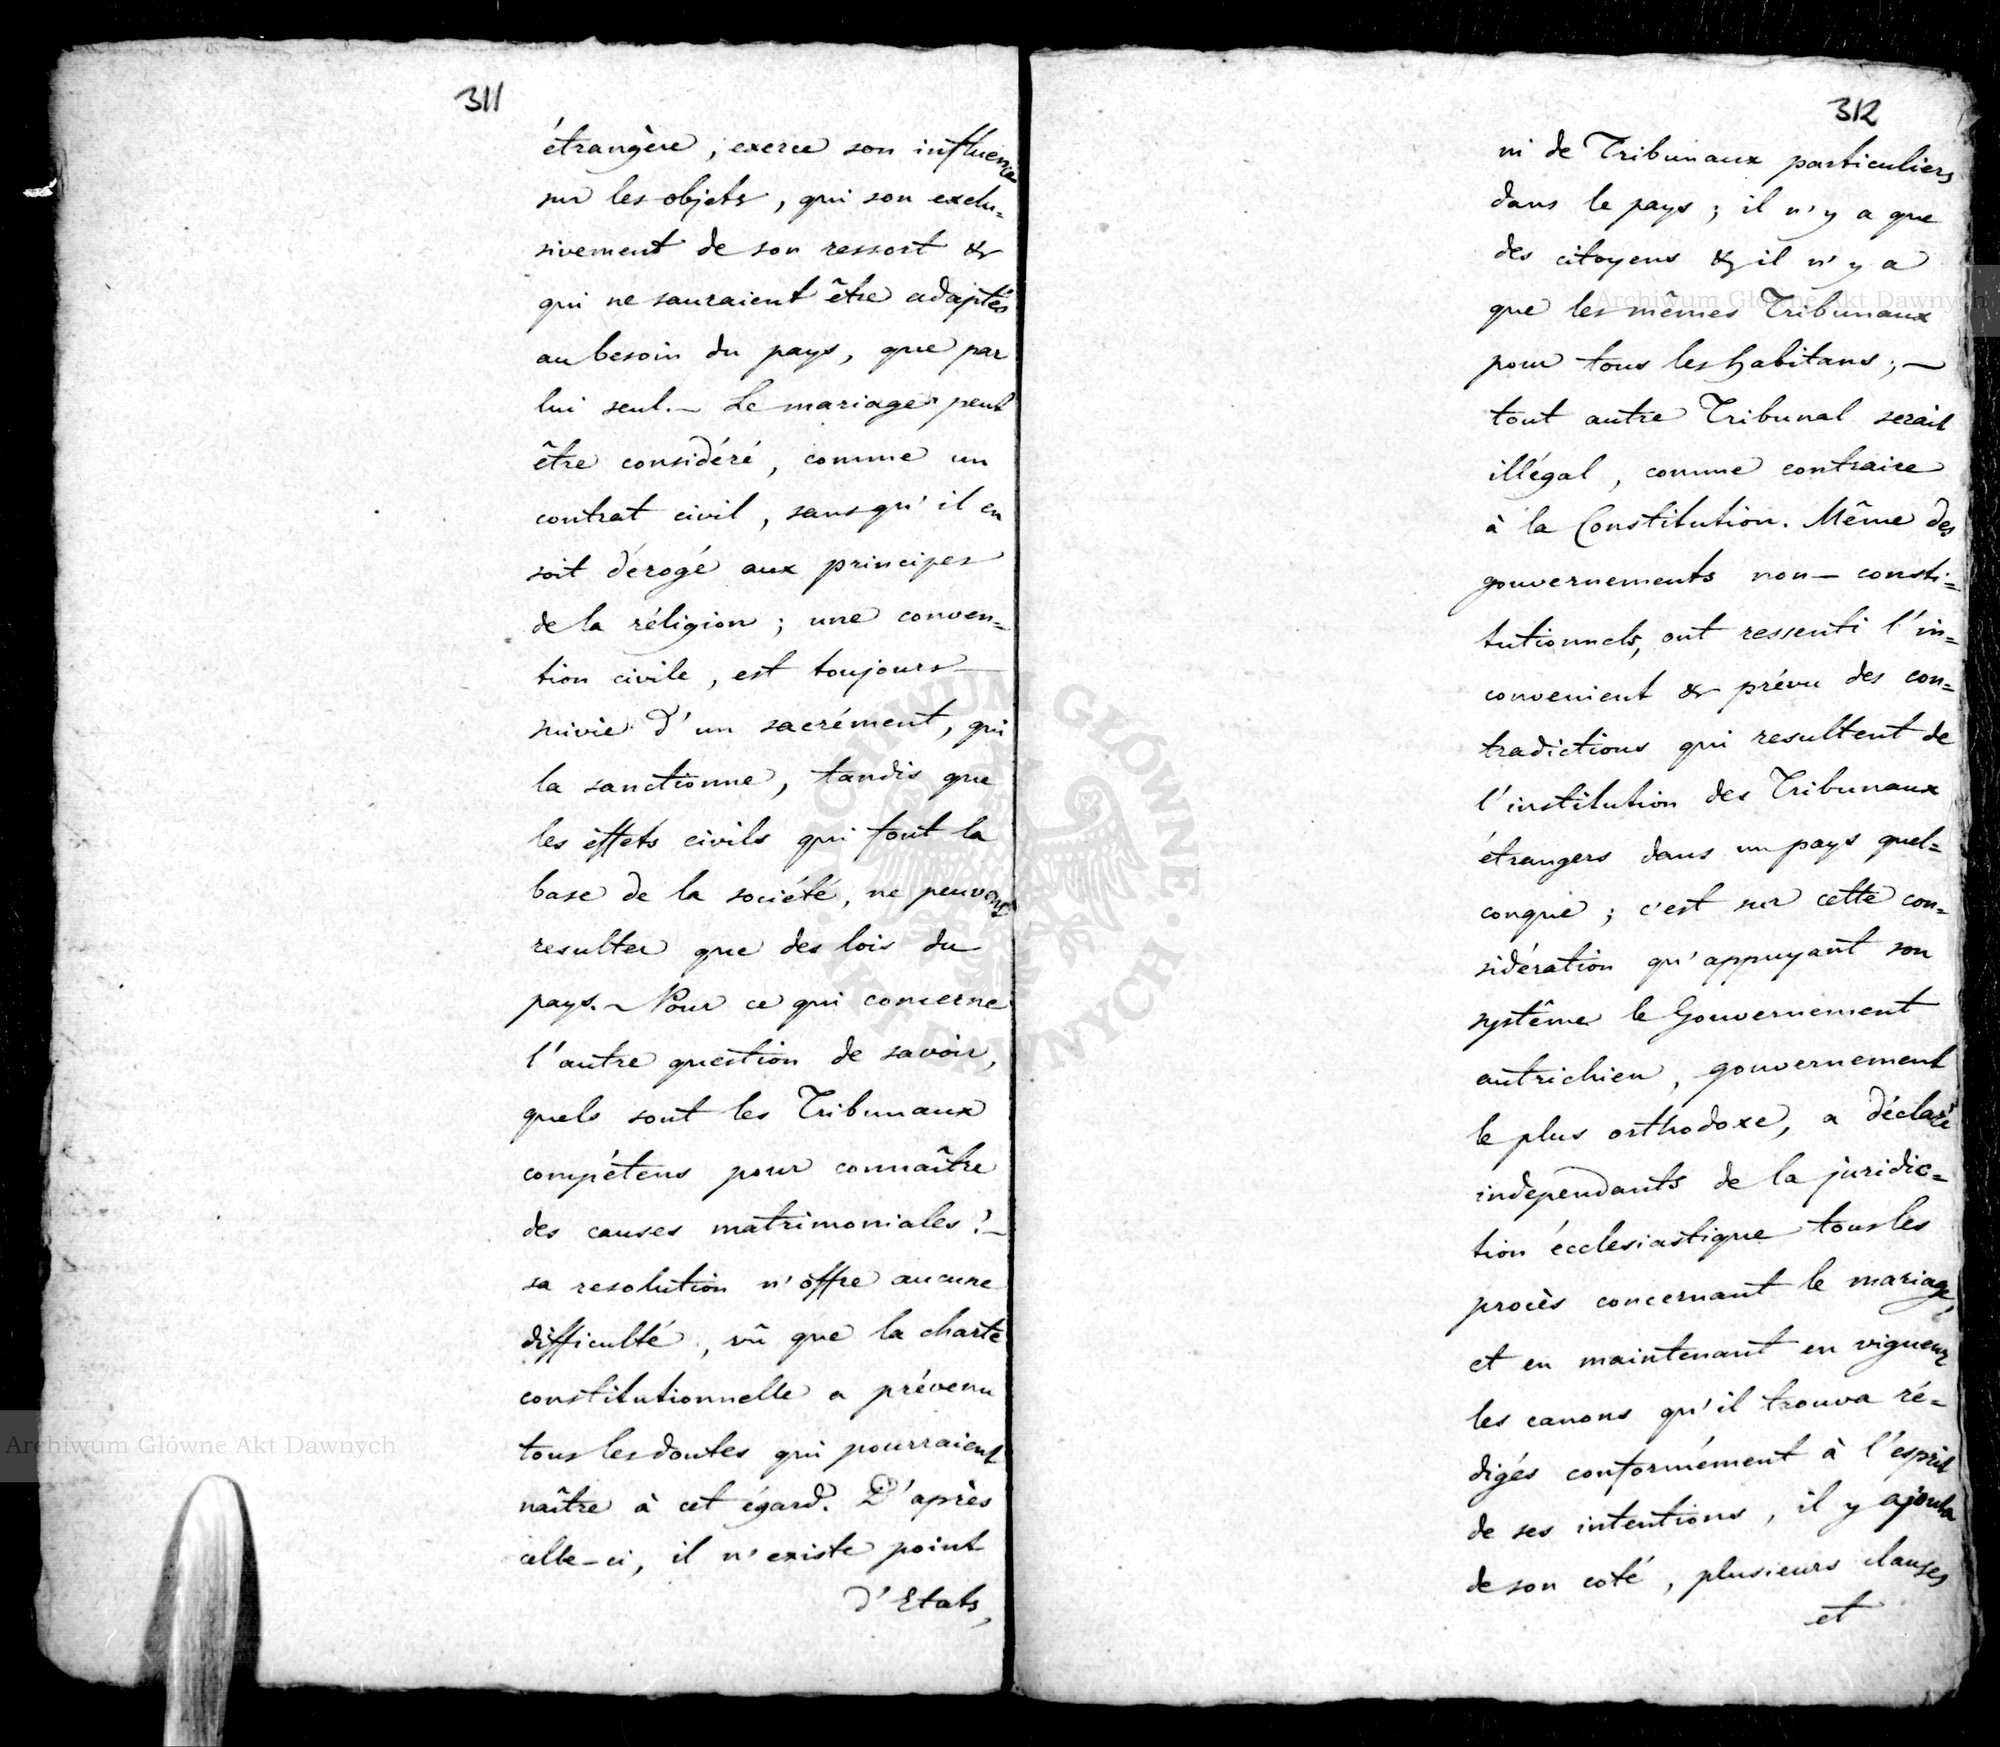 311
étrangère, exerce son influence
sur les objets, qui son exclu=
sivement de son ressort &
qui ne sauraient être adaptés
au besoin du pays, que par
lui seul. – Le mariage peut
être considéré, comme un
contrat civil, sans qu'il en
soit dérogé aux principes
de la réligion; une conven=
tion civile, est toujours
suivie d'un sacrément, qui
la sanctionne, tandis que
les éffets civils qui font la
base de la société, ne peuvent
resulter que des lois du
pays. – Pour ce qui concerne
l'autre question de savoir,
quels sont les Tribunaux
compétens pour connaître
des causes matrimoniales? –
sa resolution n'offre aucune
difficulté, vû que la charte
constitutionnelle a prévenu
tous les doutes qui pourraient
naître à cet égard. D'après
celle-ci, il n'existe point
d'Etats,
312
ni de Tribunaux particuliers
dans le pays; il n'y a que
des citoyens & il n'y a
que les mêmes Tribunaux
pour tous les habitans; –
tout autre Tribunal serait
illégal, comme contraire
à la Constitution. Même des
gouvernements non-consti=
tutionnels, ont ressenti l'in=
convenient & prévu des con=
tradictions qui resultent de
l'institution des Tribunaux
étrangers dans un pays quel=
conque; c'est sur cette con=
sidération qu'appuyant son
systême le Gouvernement
autrichien, gouvernement
le plus orthodoxe, a déclaré
independants de la juridic=
tion écclesiastique tous les
procès concernant le mariage,
et en maintenant en vigueur
les canons qu'il trouva ré=
digés conformément à l'esprit
de ses intentions, il y ajouta
de son coté, plusieurs clauses
et
Archiwum Główne Akt Dawnych
Archiwum Główne Akt Dawnych
ARCHIWUM GŁÓWNE AKT DAWNYCH